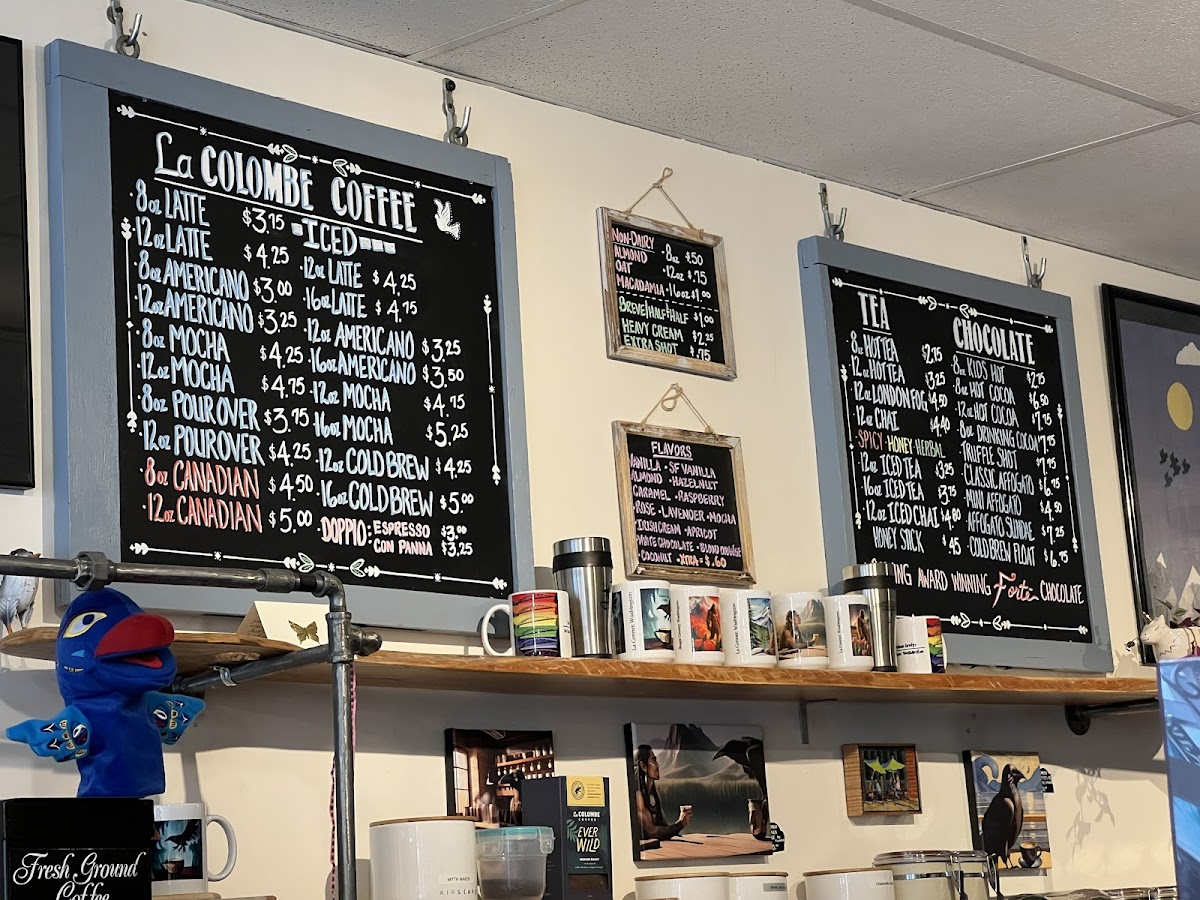 La COLOMBE COFFEE
·8oz LATTE $3.15
·12oz LATTE $4.25
·8oz AMERICANO $3.00
·12oz AMERICANO $3.25
·8oz MOCHA $4.25
·12oz MOCHA $4.75
·8oz POUR OVER $3.75
·12oz POUROVER $4.25
·8oz CANADIAN $4.50
·12oz CANADIAN $5.00
ICED
·12oz LATTE $4.25
·16oz LATTE $4.75
·12oz AMERICANO $3.25
·16oz AMERICANO $3.50
·12oz MOCHA $4.75
·16oz MOCHA $5.25
·12oz COLD BREW $4.25
·16oz COLD BREW $5.00
·DOPPIO: ESPRESSO $3.00
CON PANNA $3.25
NON-DAIRY
ALMOND ·8oz $.50
OAT ·12oz $.75
MACADAMIA ·16oz $1.00
BREVE/HALF&HALF $1.00
HEAVY CREAM $2.25
EXTRA SHOT $.75
FLAVORS
VANILLA · SF VANILLA
ALMOND · HAZELNUT
CARAMEL · RASPBERRY
·ROSE · LAVENDER · MOCHA
·IRISH CREAM · APRICOT
WHITE CHOCOLATE · BLOOD ORANGE
·COCONUT · XTRA = $.60
TEA
·8oz HOT TEA $2.75
·12oz HOT TEA $3.25
·12oz LONDON FOG $4.50
·12oz CHAI $4.40
·SPICY·HONEY·HERBAL
·12oz ICED TEA $3.25
·16oz ICED TEA $3.75
·12oz ICED CHAI $4.80
HONEY STICK $.45
CHOCOLATE
·8oz KID'S HOT $2.75
·8oz HOT COCOA $6.50
·12oz HOT COCOA $7.75
·8oz DRINKING COCOA $7.75
·TRUFFLE SHOT
·CLASSIC AFFOGATO
·MINI AFFOGATO
·AFFOGATO SUNDAE
·COLD BREW FLOAT $6.75
ING AWARD WINNING Forte CHOCOLATE
La Conner, Washington
La Conner, Washington
La Conner, Washington
La COLOMBE
COFFEE
EVER
WILD
Fresh Ground
Coffee